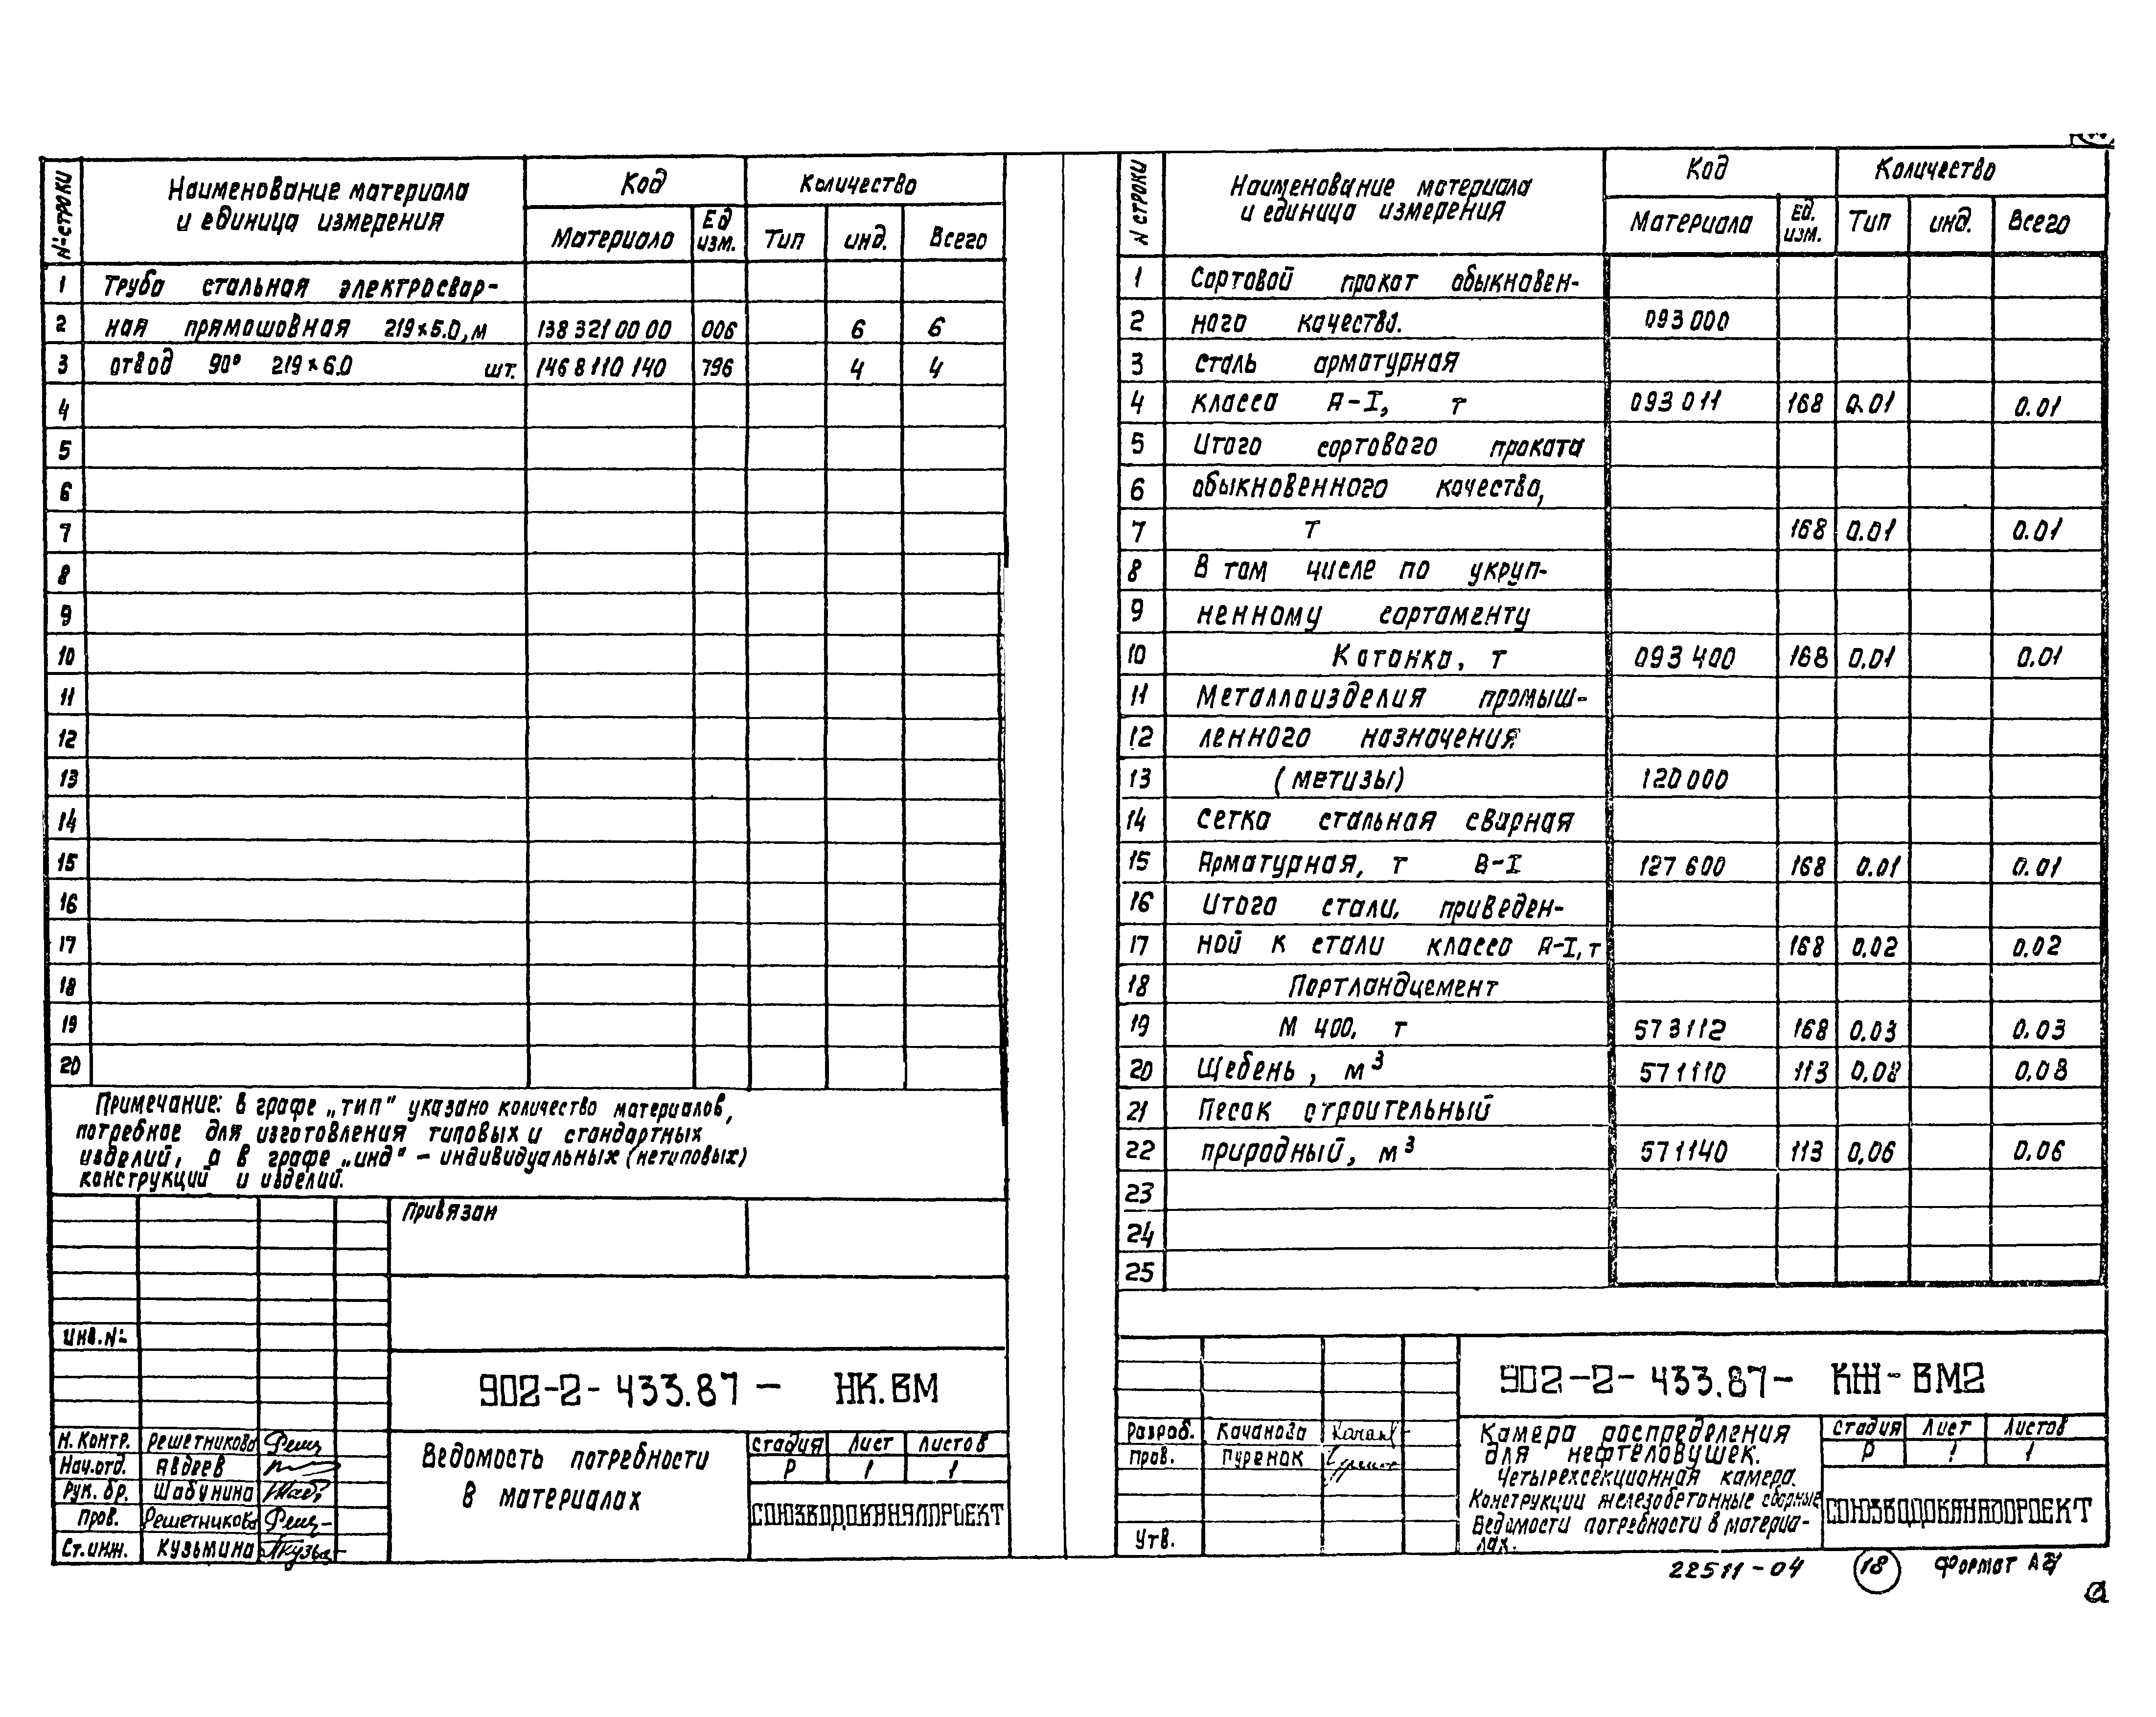 N° строки
Наименование материала
и единица измерения
Код
Количество
Материала
Ед
изм.
Тип
инд.
Всего
1 Труба стальная электросвар-
2 ная прямошовная 219×5.0, м 138 321 00 00 006 6 6
3 отвод 90° 219×6.0 шт. 146 8 110 140 796 4 4
4
5
6
7
8
9
10
11
12
13
14
15
16
17
18
19
20
Примечание: в графе „тип" указано количество материалов,
потребное для изготовления типовых и стандартных
изделий, а в графе „инд" – индивидуальных (нетиповых)
конструкций и изделий.
Привязан
Инв. №
902-2-433.87 – НК.ВМ
Н. Контр. Решетникова
Нач. отд. Авдеев
Рук. бр. Шабунина
Пров. Решетникова
Ст. инж. Кузьмина
Ведомость потребности
в материалах
Стадия Лист Листов
Р 1 1
СОЮЗВОДОКАНАЛПРОЕКТ
N строки
Наименование материала
и единица измерения
Код
Количество
Материала
Ед.
изм.
Тип
инд.
Всего
1 Сортовой прокат обыкновен-
2 ного качества. 093 000
3 сталь арматурная
4 класса А-I, т 093 011 168 0.01 0.01
5 Итого сортового проката
6 обыкновенного качества,
7 т 168 0.01 0.01
8 В том числе по укруп-
9 ненному сортаменту
10 Катанка, т 093 400 168 0,01 0.01
11 Металлоизделия промыш-
12 ленного назначения
13 (метизы) 120 000
14 Сетка стальная сварная
15 Арматурная, т В-I 127 600 168 0.01 0.01
16 Итого стали, приведен-
17 ной к стали класса А-I, т 168 0,02 0.02
18 Портландцемент
19 М 400, т 573112 168 0,03 0.03
20 Щебень, м³ 571110 113 0,08 0,08
21 Песок строительный
22 природный, м³ 571140 113 0,06 0.06
23
24
25
902-2-433.87- КЖ-ВМ2
Разраб. Качанова
Пров. Гуренок
Утв.
Камера распределения
для нефтеловушек.
Четырехсекционная камера.
Конструкции железобетонные сборные
Ведомости потребности в материа-
лах.
Стадия Лист Листов
Р 1 1
СОЮЗВОДОКАНАЛПРОЕКТ
22511-04 18 Формат